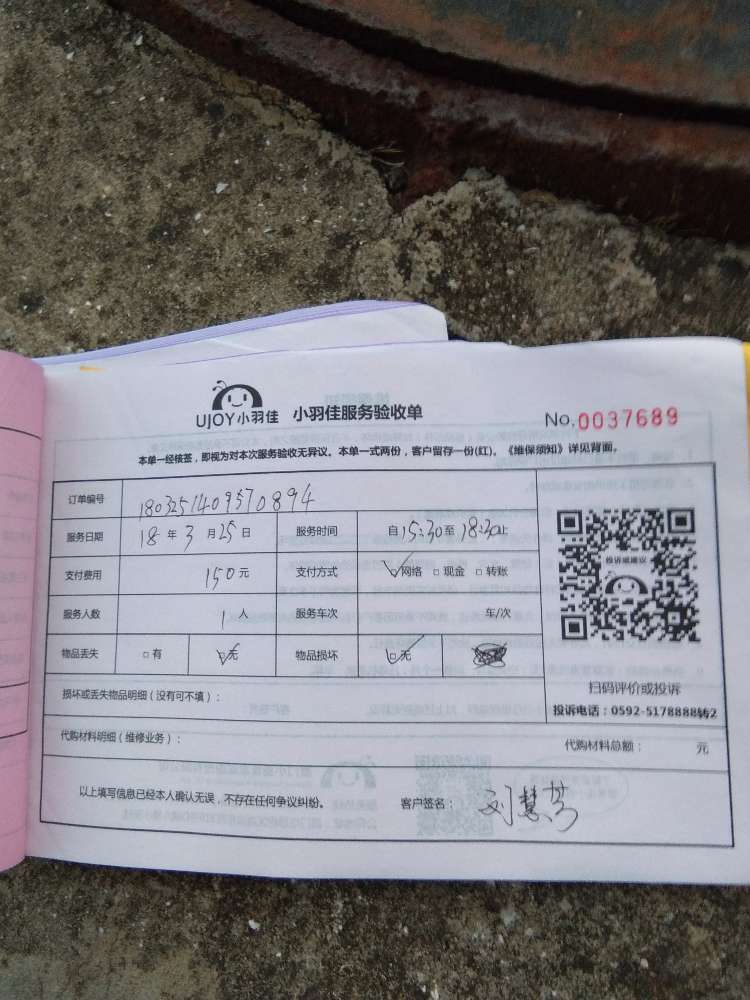 UJOY小羽佳 小羽佳服务验收单 No.0037689
本单一经核签，即视为对本次服务验收无异议。本单一式两份，客户留存一份(红)。《维保须知》详见背面。
订单编号 1803251409570894
服务日期 18年3月25日 服务时间 自15:30至18:30止
支付费用 150元 支付方式 ☑网络 □现金 □转账
服务人数 1人 服务车次 车/次
物品丢失 □有 ☑无 物品损坏 ☑无
投诉或建议
扫码评价或投诉
投诉电话：0592-5178888转2
损坏或丢失物品明细（没有可不填）：
代购材料明细（维修业务）： 代购材料总额： 元
以上填写信息已经本人确认无误，不存在任何争议纠纷。 客户签名： 刘慧芳